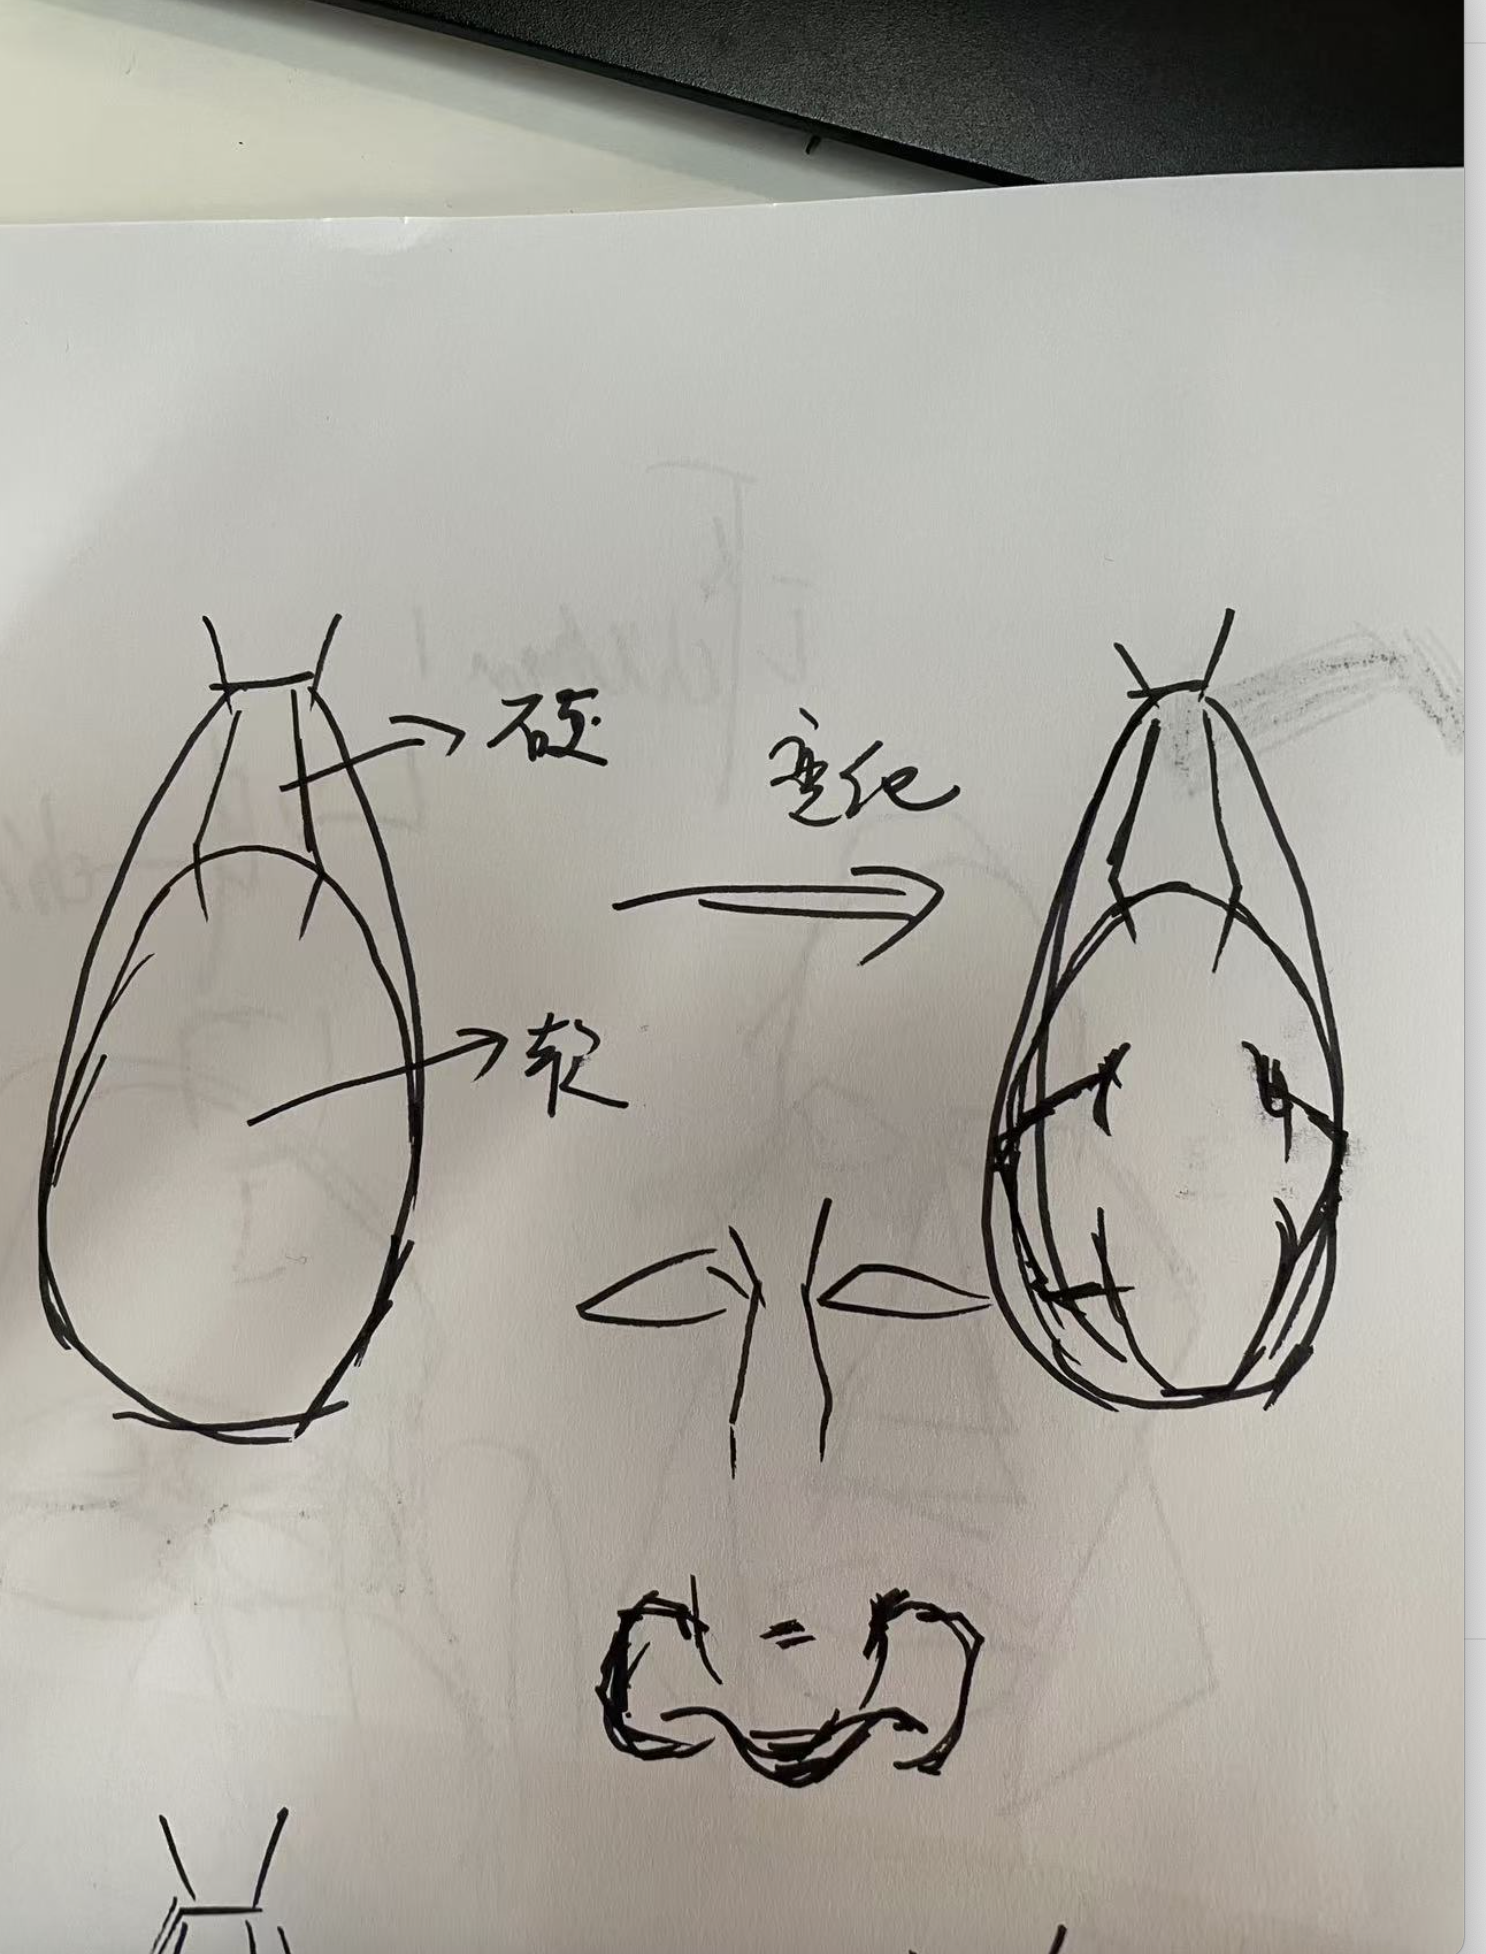 硬
变化
软